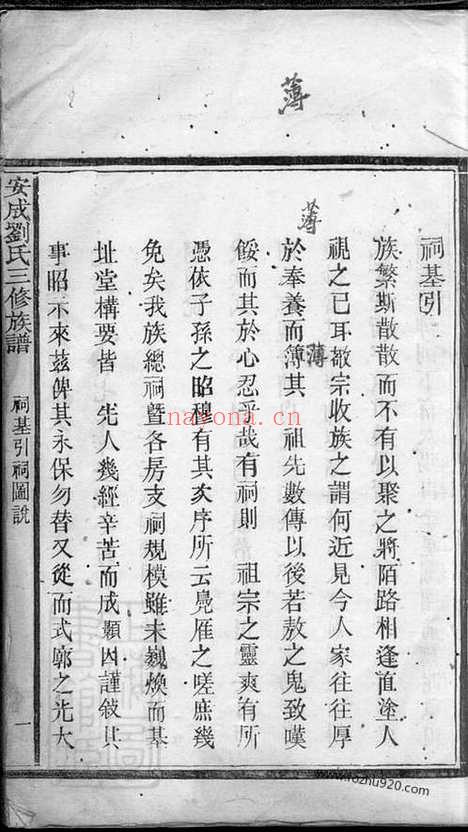 薄
薄
薄
祠基引
族繁斯散散而不有以聚之將陌路相逢直塗人
視之已耳敬宗收族之謂何近見今人家往往厚
於奉養而簿其　祖先數傳以後若敖之鬼致嘆
餒而其於心忍乎哉有祠則　祖宗之靈爽有所
憑依子孫之昭穆有其次序所云鳧雁之嗟庶幾
免矣我族總祠暨各房支祠規模雖未巍煥而基
址堂構要皆　先人幾經辛苦而成顯因謹敍其
事昭示來茲俾其永保勿替又從而式廓之光大
安成劉氏三修族譜　祠基引祠圖說　一
navona.cn
www.rozhu920.com